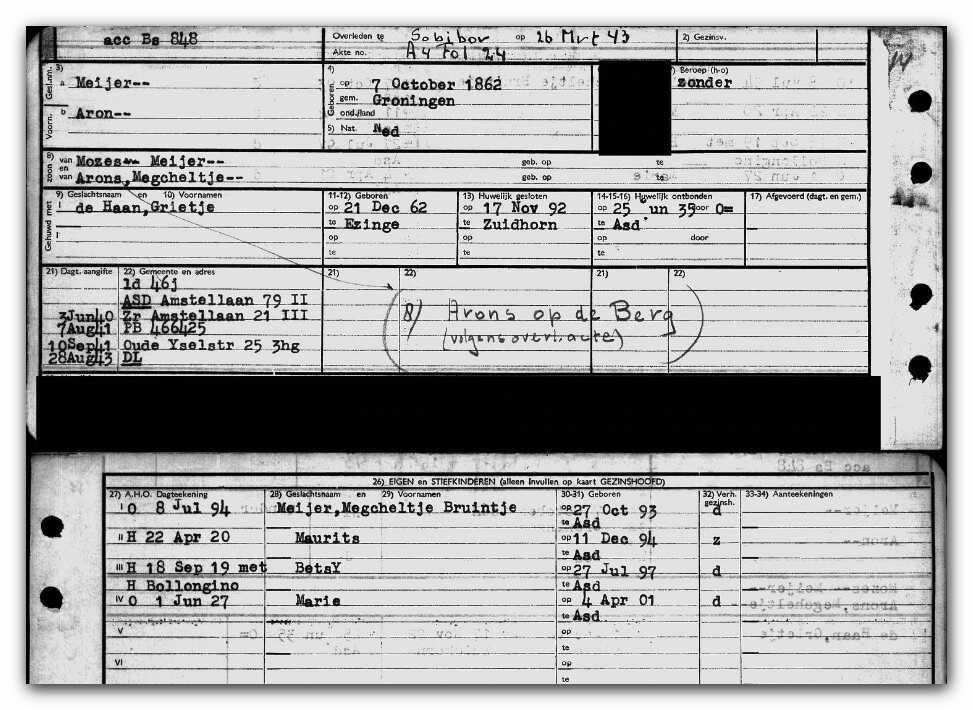 acc Bs 848
Overleden te Sobibor op 26 Mrt 43
2) Gezinsv.
Akte no. A4 Fol 24
Gesl.nm.
3)
a Meijer--
Voorn.
b Aron--
4)
Geboren
op 7 October 1862
gem. Groningen
ond./land
5) Nat. Ned
) Beroep (h-o)
zonder
8)
zoon
van Mozes-- Meijer-- geb. op te
en
van Arons, Megcheltje-- geb. op te
Gehuwd met
9) Geslachtsnaam en 10) Voornamen
I de Haan,Grietje
11-12) Geboren
op 21 Dec 62
te Ezinge
op
te
13) Huwelijk gesloten
op 17 Nov 92
te Zuidhorn
op
te
14-15-16) Huwelijk ontbonden
op 25 un 35 door O=
te Asd
op door
te
17) Afgevoerd (dagt. en gem.)
21) Dagt. aangifte 22) Gemeente en adres 21) 22) 21) 22)
ld 46j
ASD Amstellaan 79 II
3Jun40 Zr Amstellaan 21 III
7Aug41 PB 466425
10Sep41 Oude Yselstr 25 3hg
28Aug43 DL
8) Arons op de Berg
(volgens overl.acte)
26) EIGEN en STIEFKINDEREN (alleen invullen op kaart GEZINSHOOFD)
27) A.H.O. Dagteekening 28) Geslachtsnaam en 29) Voornamen 30-31) Geboren 32) Verh. gezinsh. 33-34) Aanteekeningen
I O 8 Jul 94 Meijer,Megcheltje Bruintje op 27 Oct 93 d
te Asd
II H 22 Apr 20 Maurits op 11 Dec 94 z
te Asd
III H 18 Sep 19 met BetsY op 27 Jul 97 d
H Bollongino te Asd
IV O 1 Jun 27 Marie op 4 Apr 01 d
te Asd
V op
te
VI op
te